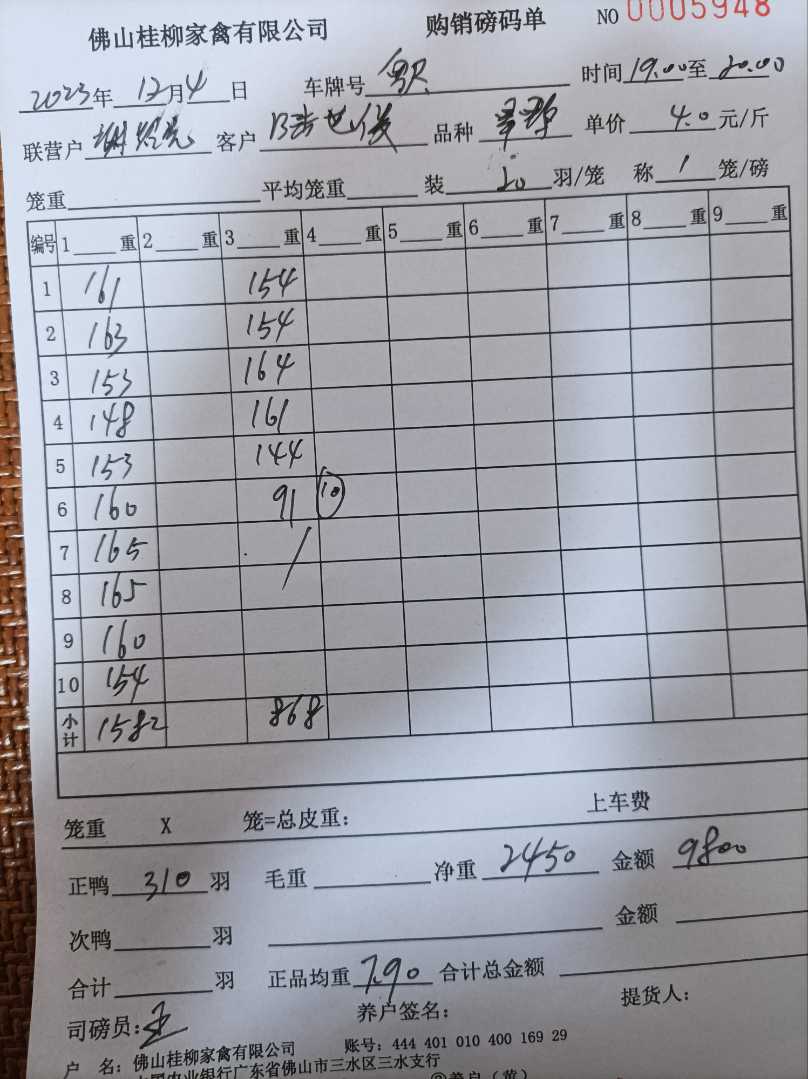 佛山桂柳家禽有限公司 购销磅码单 NO 0005948
2023年12月4日 车牌号 时间19.00至20.00
联营户 客户 品种 单价4.0元/斤
笼重 平均笼重 装20羽/笼 称1笼/磅
编号 1重 2重 3重 4重 5重 6重 7重 8重 9重
1 161 154
2 163 154
3 153 164
4 148 161
5 153 144
6 160 91 10
7 165 /
8 165
9 160
10 154
小计 1582 868
笼重 X 笼=总皮重: 上车费
正鸭310羽 毛重 净重2450 金额9800
次鸭 羽 金额
合计 羽 正品均重7.90 合计总金额
司磅员: 养户签名: 提货人:
户 名: 佛山桂柳家禽有限公司 账号: 444 401 010 400 169 29
国农业银行广东省佛山市三水区三水支行